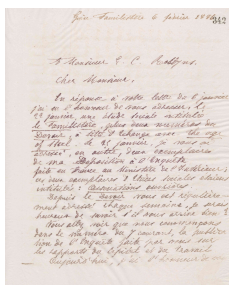 Guise Familistère 6 février 1886
342
à Monsieur E. C.
Cher Monsieur,
En réponse à votre lettre de 8 janvier
j'ai eu l'honneur de vous adresser, le
23 janvier, une étude sociale intitulée
le Familistère, plus deux numéros du
Devoir, à titre d'échange avec The age
of Steel. Le 25 janvier, je vous ai
adressé, en outre, deux exemplaires
de ma Déposition à l'Enquête
faite en France au Ministère de l'Intérieur
et un exemplaire d'Études sociales
intitulé: Associations ouvrières.
Depuis le Devoir vous est régulière
ment adressé chaque semaine, je serais
heureux de savoir s'il vous arrive bien.
Vous allez voir que nous commençons
dans le numéro du 7 courant, la publica
tion de l'Enquête faite par
les rapports du Capital et du Travail
Aujourd'hui, j'ai l'honneur de